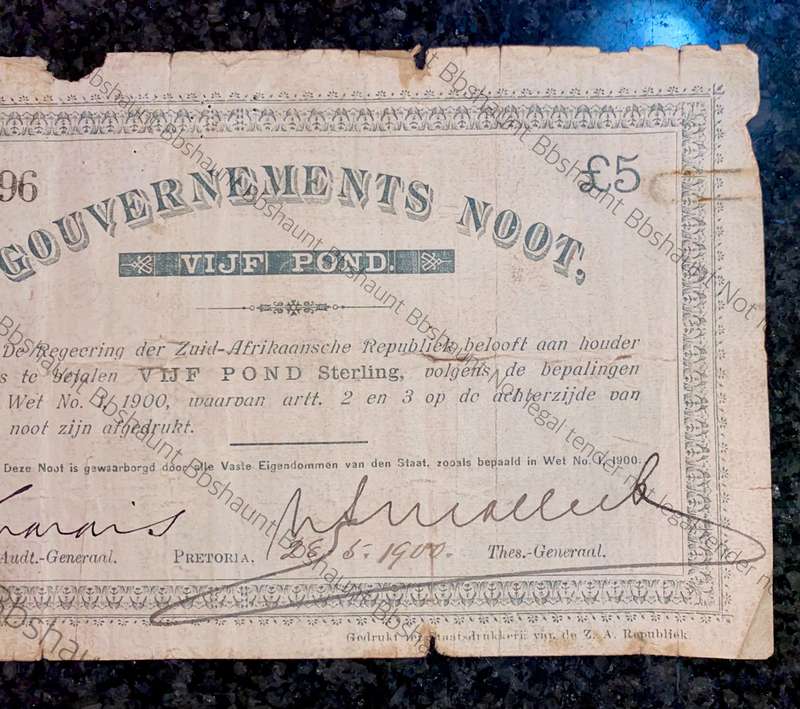 96
£5
GOUVERNEMENTS NOOT,
VIJF POND.
De Regeering der Zuid-Afrikaansche Republiek belooft aan houder
s te betalen VIJF POND Sterling, volgens de bepalingen
Wet No. 1, 1900, waarvan artt. 2 en 3 op de achterzijde van
noot zijn afgedrukt.
Deze Noot is gewaarborgd door alle Vaste Eigendommen van den Staat, zooals bepaald in Wet No. 1, 1900.
Audt.-Generaal. PRETORIA, 28/5.1900. Thes.-Generaal.
Gedrukt ter Staatsdrukkerij van de Z. A. Republiek
Bbshaunt Bbshaunt Bbshaunt Bbshaunt No legal tender not legal tender